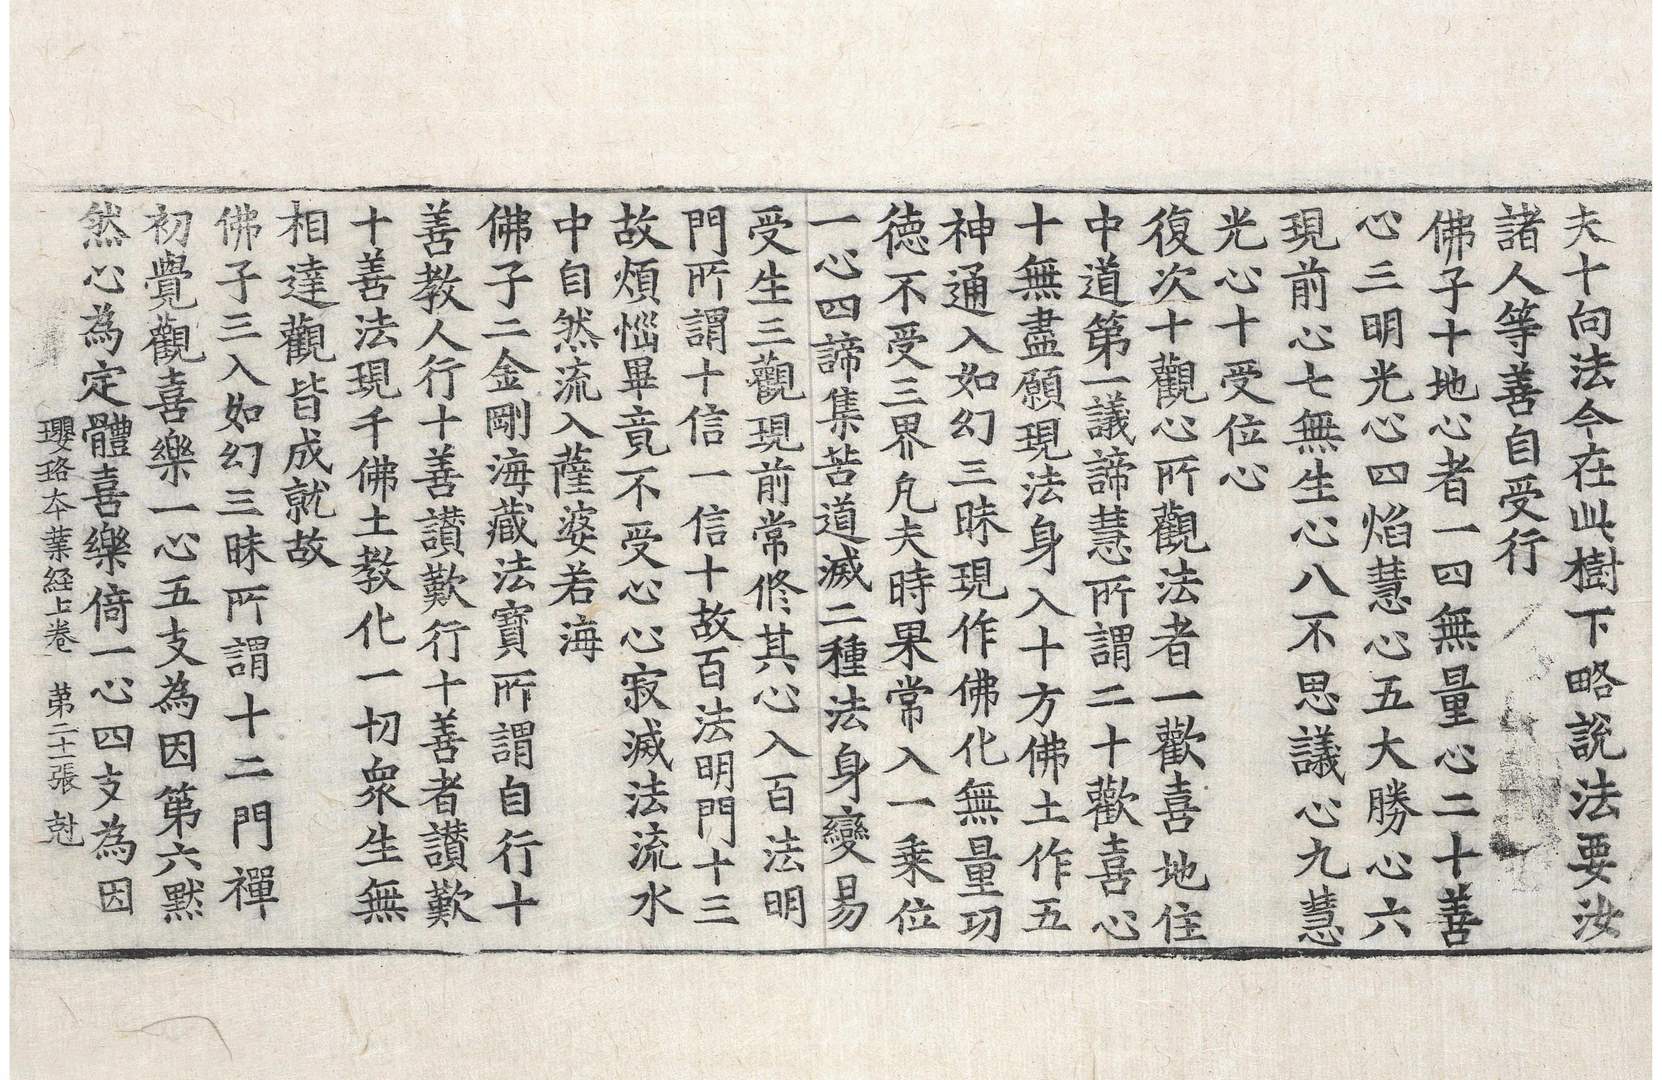 夫十向法今在此樹下略說法要汝
諸人等善自受行
佛子十地心者一四無量心二十善
心三明光心四焰慧心五大勝心六
現前心七無生心八不思議心九慧
光心十受位心
復次十觀心所觀法者一歡喜地住
中道第一議諦慧所謂二十歡喜心
十無盡願現法身入十方佛土作五
神通入如幻三昧現作佛化無量功
德不受三界凡夫時果常入一乘位
一心四諦集苦道滅二種法身變易
受生三觀現前常修其心入百法明
門所謂十信一信十故百法明門十三
故煩惱畢竟不受心心寂滅法流水
中自然流入薩婆若海
佛子二金剛海藏法寶所謂自行十
善教人行十善讃歎行十善者讃歎
十善法現千佛土教化一切衆生無
相達觀皆成就故
佛子三入如幻三昧所謂十二門禪
初覺觀喜樂一心五支為因第六黙
然心為定體喜樂倚一心四支為因
瓔珞本業経上卷 第二十張 尅